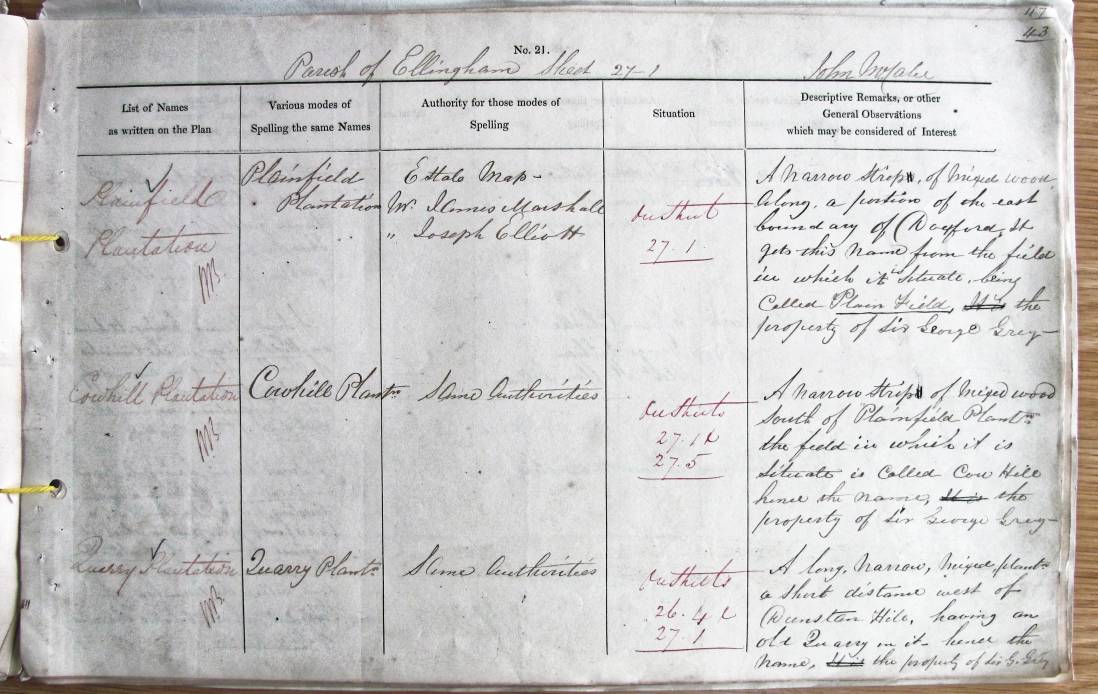 47
43
No. 21.
Parish of Ellingham Sheet 27-1 John McCabe
List of Names
as written on the Plan
Various modes of
Spelling the same Names
Authority for those modes of
Spelling
Situation
Descriptive Remarks, or other
General Observations
which may be considered of Interest
Plainfield
Plantation
Plainfield
Plantation
Estate Map -
Mr. James Marshall
" Joseph Elliott
On Sheet
27.1.
A narrow strip, of mixed wood
along, a portion of the east
boundary of Doxford, It
gets this name from the field
in which it situate, being
Called Plain Field, It is the
property of Sir George Grey-
Cowhill Plantation
Cowhill Plantn
Same Authorities
On Sheets
27.1 &
27.5
A narrow strip of mixed wood
South of Plainfield Plantn
the field in which it is
situate is Called Cow Hill
hence the name, It is the
property of Sir George Grey-
Quarry Plantation
Quarry Plantn
Same Authorities
On Sheets
26.4 &
27.1
A long, narrow, mixed plantn
a short distance west of
Dunstan Hill, having an
old Quarry in it hence the
name, It is the property of Sir G. Grey